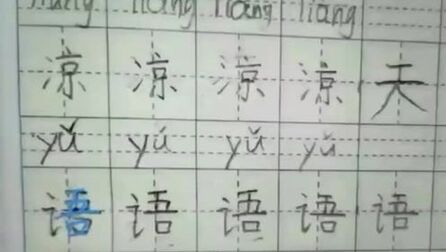 liáng liáng liáng
凉 凉 凉 凉 天
yǔ yǔ yǔ yǔ
语 语 语 语 语